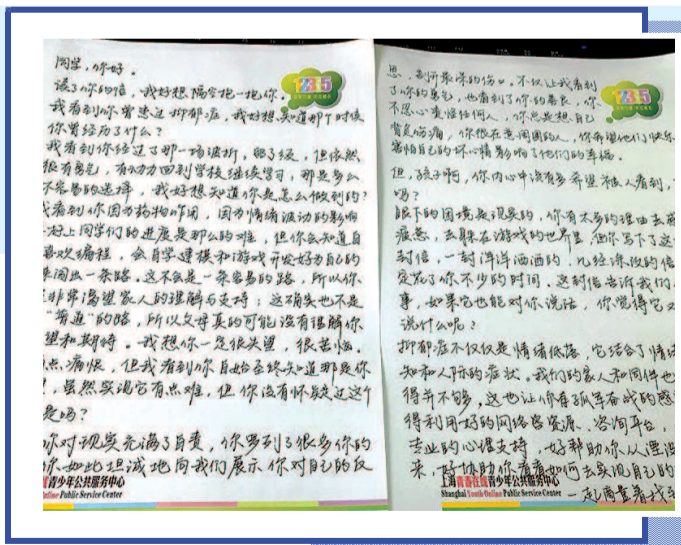 同学,你好。
读了你的信,我好想隔空抱一抱你。
我看到你曾患过抑郁症,我好想知道那个时候
你曾经历了什么?
我看到你经过了那一场波折,
很有勇气,有动力回到学校继续学习,那是多么
不容易的选择,我好想知道你是怎么做到的?
我看到你因为药物作用,因为情绪波动的影响
上同学们的进度是那么的难,但你会知道自
喜欢编程,会自学建模和游戏开发好为自己的
闯出一条路。这不会是一条容易的路,所以你
非常渴望家人的理解与支持;这确实也不是
“普通”的路,所以父母真的可能没有理解你
望和期待。我想你一定很失望,很苦恼。
点痛恨,但我看到你自始至终知道那是你
,虽然实现它有点难,但你没有怀疑过这个
是吗?
你对现实充满了自责,你写到了很多你的
你如此坦诚地向我们展示你对自己的反
青少年公共服务中心
Online Public Service Center
12355
思,剖开最深的伤口。不仅让我看到
了你的勇气,也看到了你的善良,你
不忍心责怪任何人,你总是想自己
背负伤痛,你很在意周围的人,你希望他们快乐
害怕自己的坏心情影响了他们的幸福。
但,孩子啊,你内心中该有多希望被人看到,
吗?
眼下的困境是现实的,你有太多的理由去
疲惫,去躲在游戏的世界里,但你写下了这
封信,一封洋洋洒洒的,几经修改的信
定花了你不少的时间,这封信告诉我们
事,如果它也能对你说话,你觉得它又
说什么呢?
抑郁症不仅仅是情绪低落,它结合了情绪
知和人际的症状。我们的家人和同伴也
得并不够,这也让你有孤军奋战的感
得利用好的网络资源、咨询平台,
专业的心理支持,好帮助你从
来,好协助你看看如何去实现自己的
一起商量着找
上海青春在线青少年公共服务中心
Shanghai Youth Online Public Service Center
12355